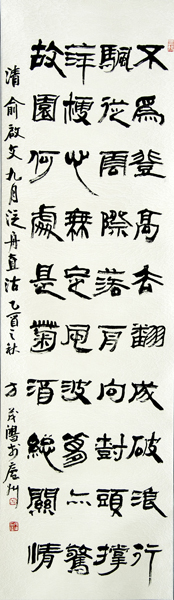 不為登高去翻成破浪行
颿從雲際落舟向樹頭撑
萍梗心無定風波夢亦驚
故園何處是菊酒總關情
清 俞啟文九月泛舟直沽 乙酉之秋 方茂鴻於廬州